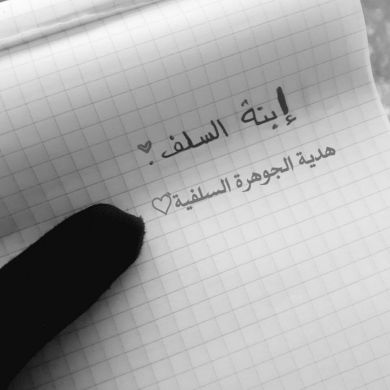 إبنة السلف. ♥
هدية الجوهرة السلفية♡